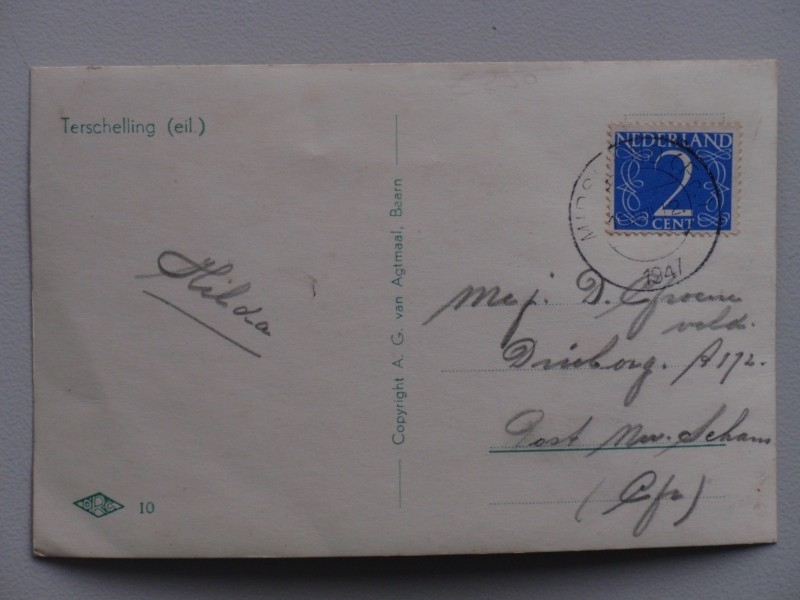 Terschelling (eil.)
Hilda
10
Copyright A. G. van Agtmaal, Baarn
NEDERLAND
2
CENT
1947
Mej. D. Groene
veld.
Drieborg. A 172.
Post Nw. Schans
(Gr)